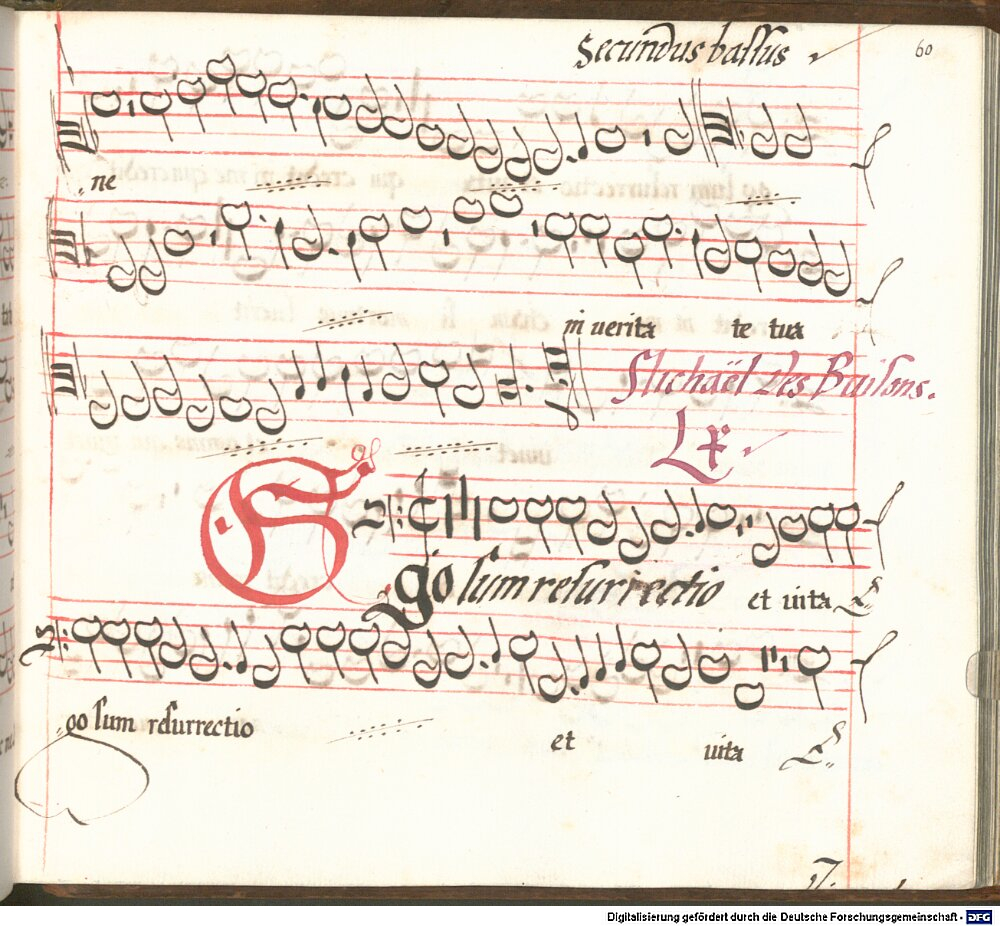 Secundus bassus
60
ne
in uerita te tua
Michaël Des Buissons.
Lx
Ego sum resurrectio et uita
go sum resurrectio et uita
Digitalisierung gefördert durch die Deutsche Forschungsgemeinschaft - DFG